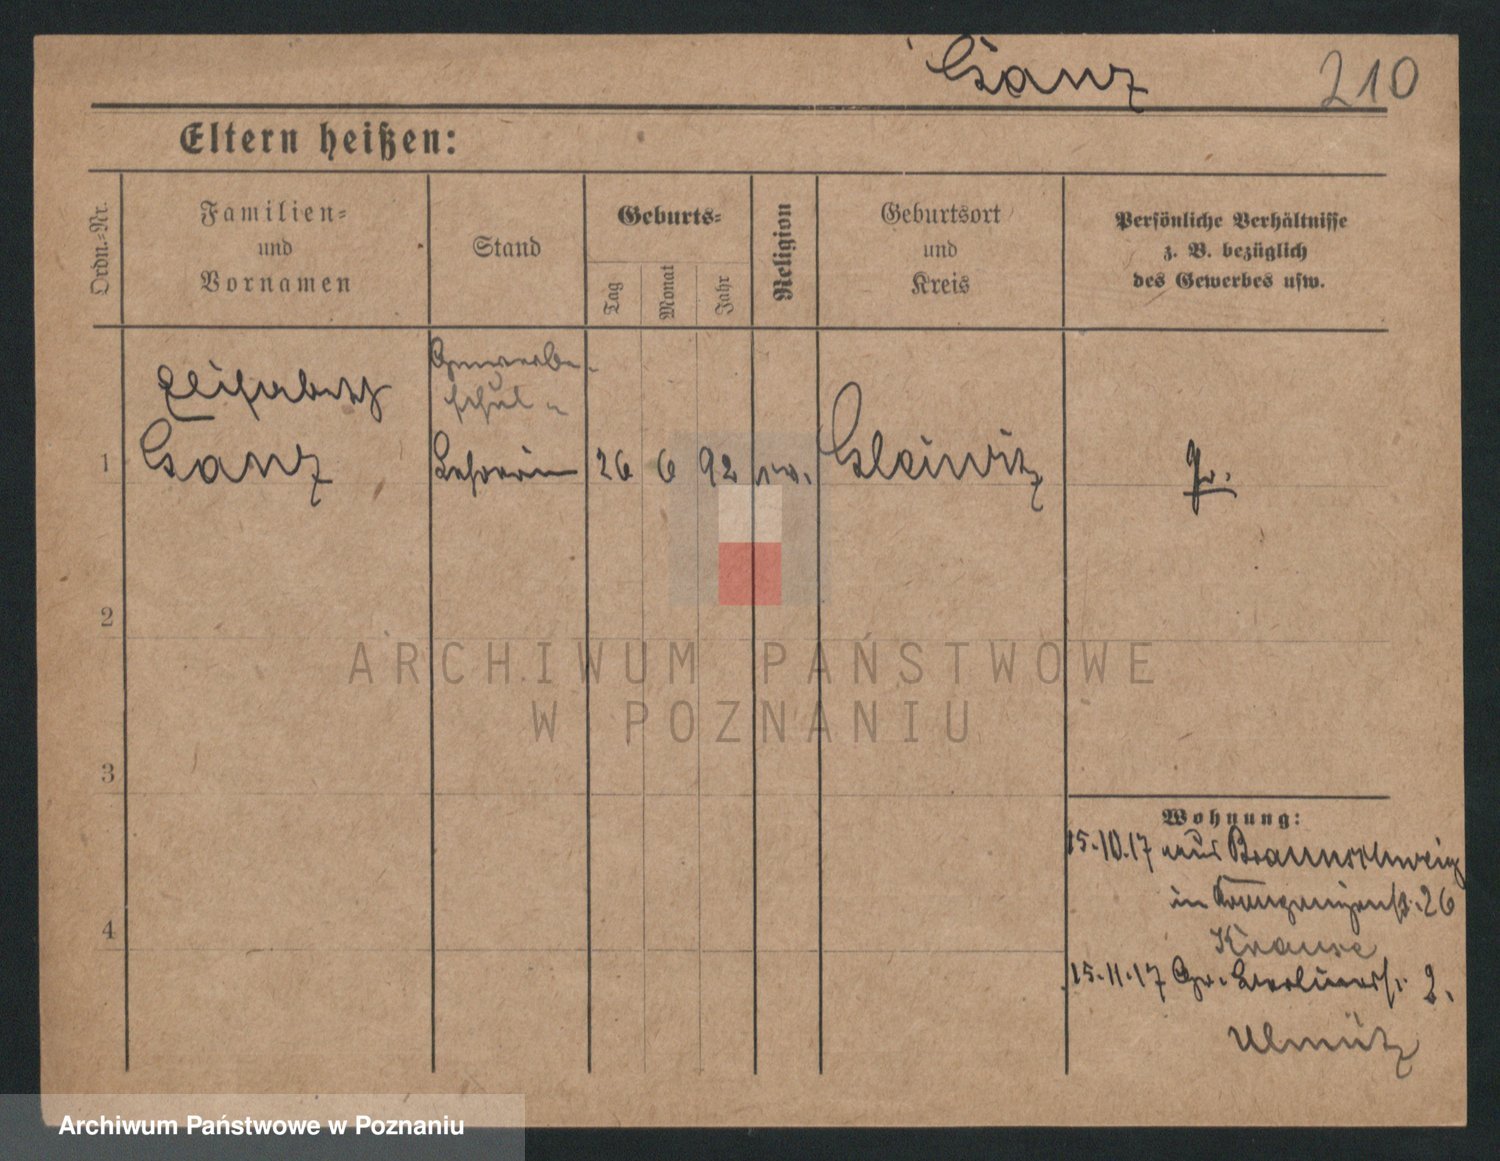 Ganz 210
Eltern heißen:
Ordn.-Nr.
Familien-
und
Vornamen
Stand
Geburts-
Tag
Monat
Jahr
Religion
Geburtsort
und
Kreis
Persönliche Verhältnisse
z. B. bezüglich
des Gewerbes usw.
Gewerbe-
schul-
Elisabeth
1 Ganz Lehrerin 26 6 92 ev. Gleiwitz Pr.
2
3
4
Wohnung:
15.10.17 aus Braunschweig
in 26
Krause
15.11.17 Gr. Berlinerst. 2.
Ulmütz
ARCHIWUM PAŃSTWOWE
W POZNANIU
Archiwum Państwowe w Poznaniu